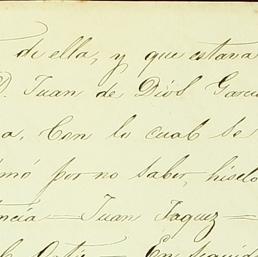 de ella, y que estava
D. Juan de Diós Garcia
a. Con lo cual se
por no saber, hiselo
tencia — Juan Jaquez —
Ortiz — En seguida